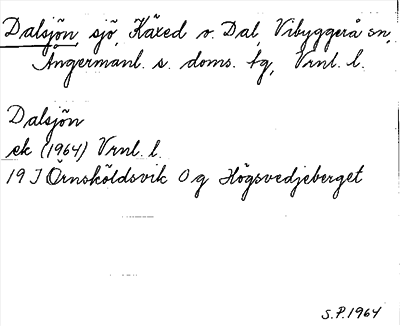 Dalsjön sjö, Käxed o. Dal, Vibyggerå sn,
Ångermanl. s. doms. tg, Vrnl. l.
Dalsjön
ek (1964) Vrnl. l.
19 I Örnsköldsvik O g Högsvedjeberget
S.P. 1964